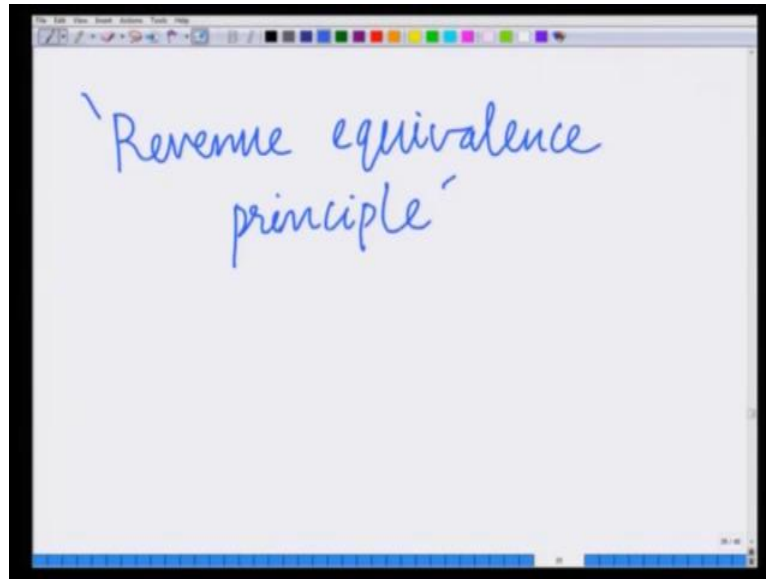 File Edit View Insert Actions Tools Help
`Revenue equivalence
principle´